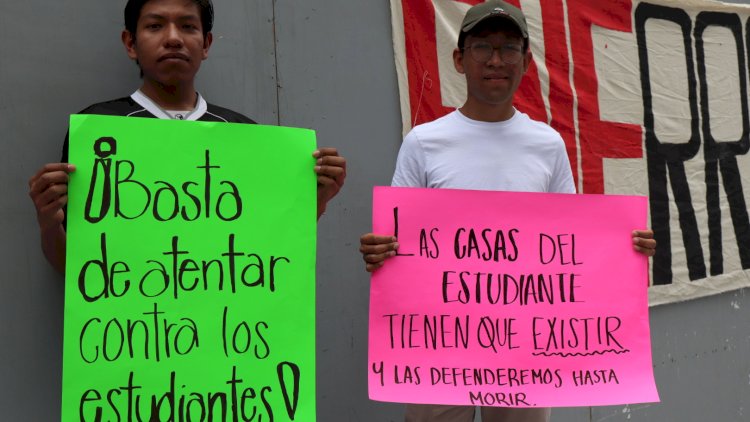 ¡Basta
de atentar
contra los
estudiantes!
LAS CASAS DEL
ESTUDIANTE
TIENEN QUE EXISTIR
Y LAS DEFENDEREMOS HASTA
MORIR.